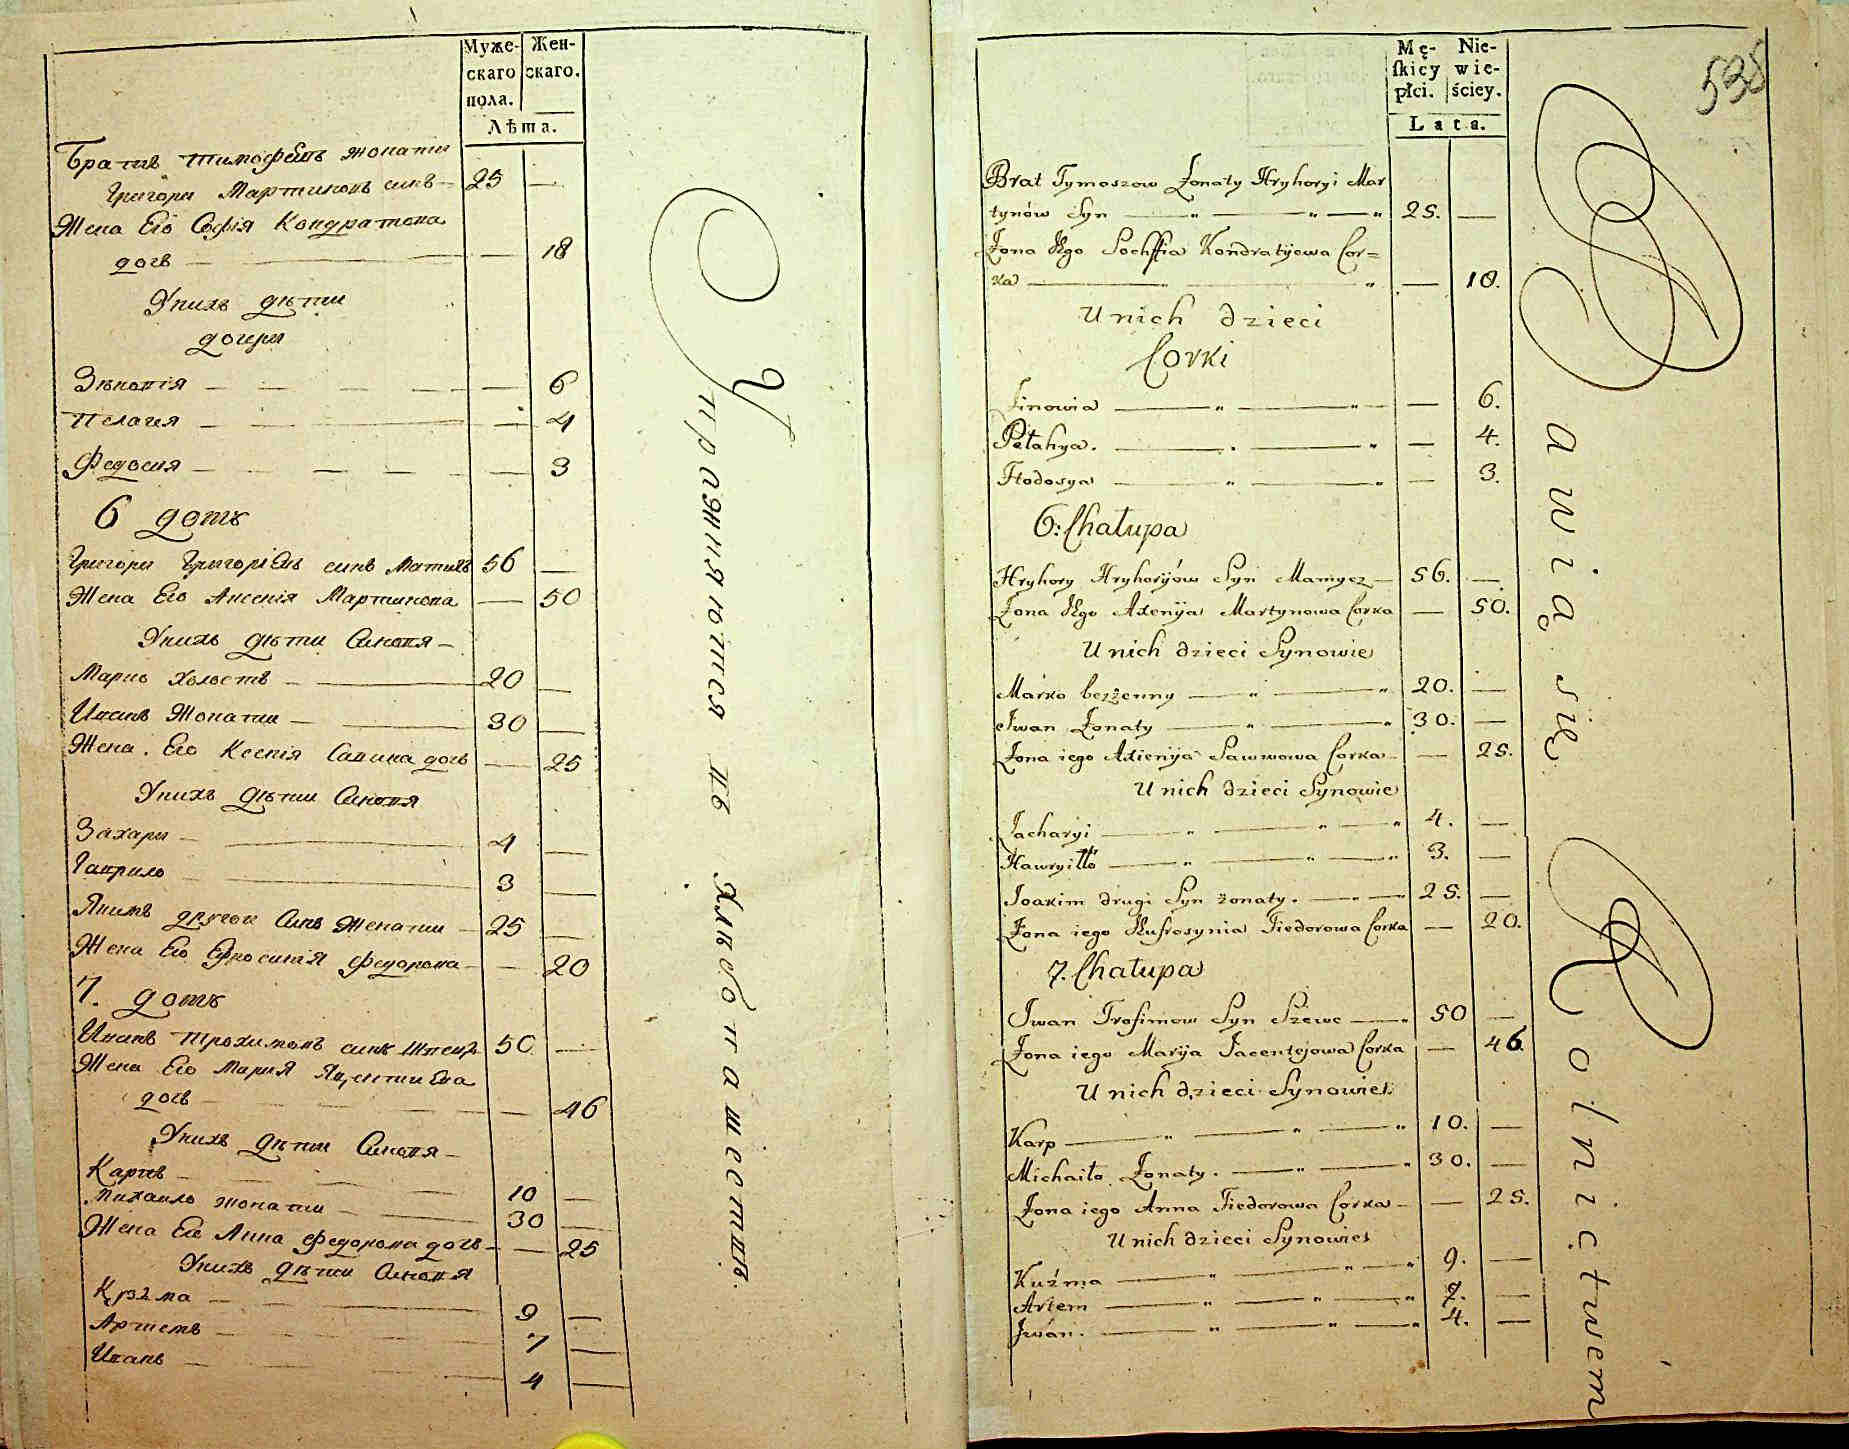 Муже-
скаго
пола.
Жен-
скаго.
Лѣта.
Братъ Тимофѣевъ жонати
Григори Мартиновъ синъ — 25 —
Жена Его Софія Кондратова
дочь — — 18
Унихъ дѣти
дочери
Зѣновія — — 6
Пелагия — — 4
Федосия — — 3
6 домъ
Григори Григоріевъ синъ 56 —
Жена Его Аксенія Мартинова — 50
Унихъ дѣти Синовя —
Марко холостъ — 20 —
Иванъ Жонати — 30 —
Жена Его Ксенія Савина дочь — 25
Унихъ дѣти Синовя
Захари — 4 —
Гаврило — 3 —
Якимъ другои Синъ Женати — 25 —
Жена Его Ефросинія Федорова — — 20
7. домъ
Иванъ Трохимовъ синъ Швецъ 50 —
Жена Его Мария Яцентиева
дочь — — 46
Унихъ дѣти Синовя —
Карпъ — 10 —
Михаило жонати — 30 —
Жена Его Анна Федорова дочь — — 25
Унихъ дѣти Синовя
Кузма — 9 —
Артемъ — 7 —
Иванъ — 4 —
Упражняются въ Хлѣбопашествѣ.
Mę-
skiey
płci.
Nie-
wie-
ściey.
Lata.
538
Brat Tymoszow Żonaty Hryhoryi Mar
tynów Syn — „ — „ — „ 25. —
Żona Jego Sochffia Kondratyewa Cor=
ka — „ — „ — 18.
U nich dzieci
Corki
Zinowia — „ — „ — 6.
Pełahya. — „ — „ — 4.
Ftodosya — „ — „ — 3.
6: Chałupa
Hryhory Hryhoryów Syn — 56. —
Żona Jego Axenija Martynowa Corka — 50.
U nich dzieci Synowie
Marko bezżenny — „ — „ 20. —
Iwan Żonaty — „ — „ 30. —
Żona iego Axienija Sawwowa Corka — — 25.
U nich dzieci Synowie
Zacharyi — „ — „ — „ 4. —
Hawryiłło — „ — „ — „ 3. —
Joakim drugi Syn żonaty. — „ — 25. —
Żona iego Eufrosynia Fiedorowa Corka — 20.
7. Chałupa
Iwan Trofimow Syn Szewc — „ 50 —
Żona iego Maryja Jacentejowa Corka — 46.
U nich dzieci Synowie
Karp — „ — „ — „ 10. —
Michaiło Żonaty. — „ — „ 30. —
Żona iego Anna Fiedorowa Corka — — 25.
U nich dzieci Synowie
Kuźma — „ — „ — „ 9. —
Artem — „ — „ — „ 7. —
Iwan. — „ — „ — „ 4. —
Bawią się Rolnictwem